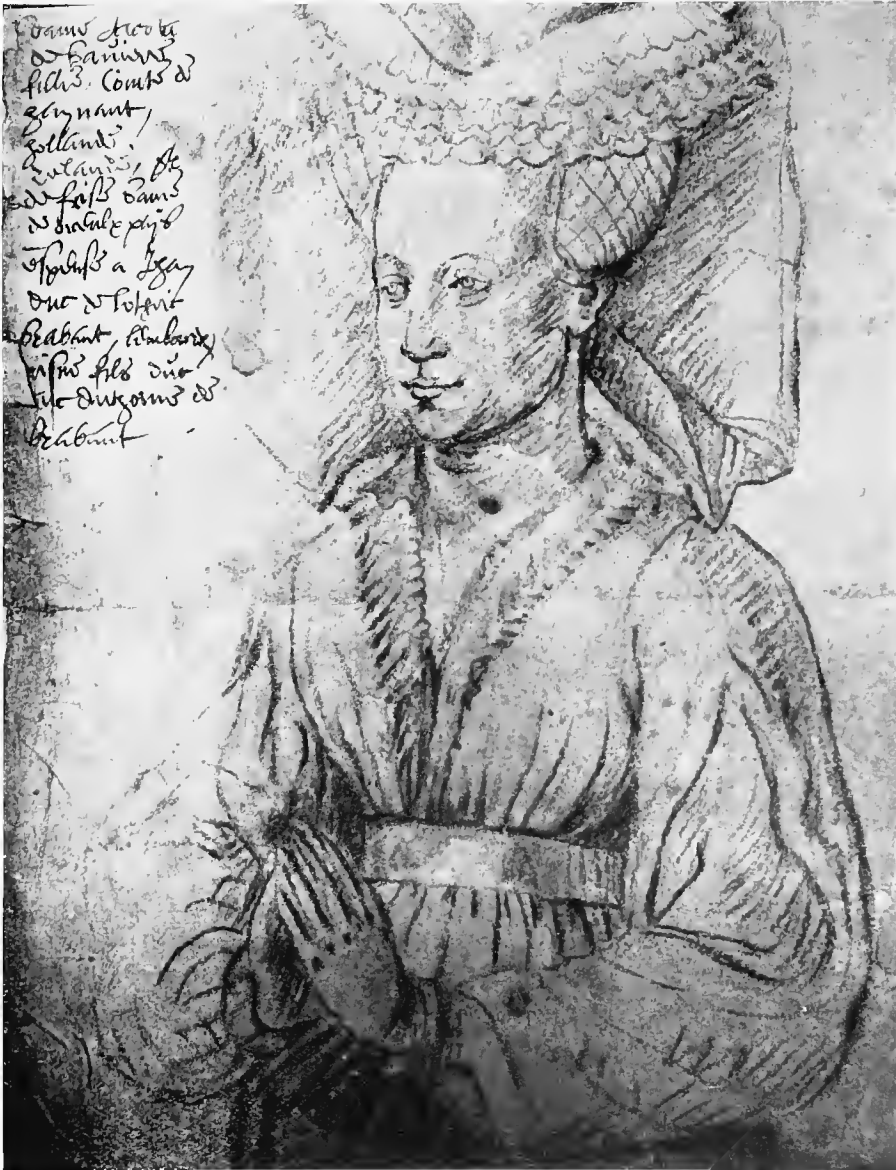 dame Jacoba
de baviere
fille Comte de
haynaut,
hollande,
zelande, et
de frise dame
de pays
espeuse a Jehan
duc de lothric
brabant, limbourg
fils duc
duc Anthoine de
brabant